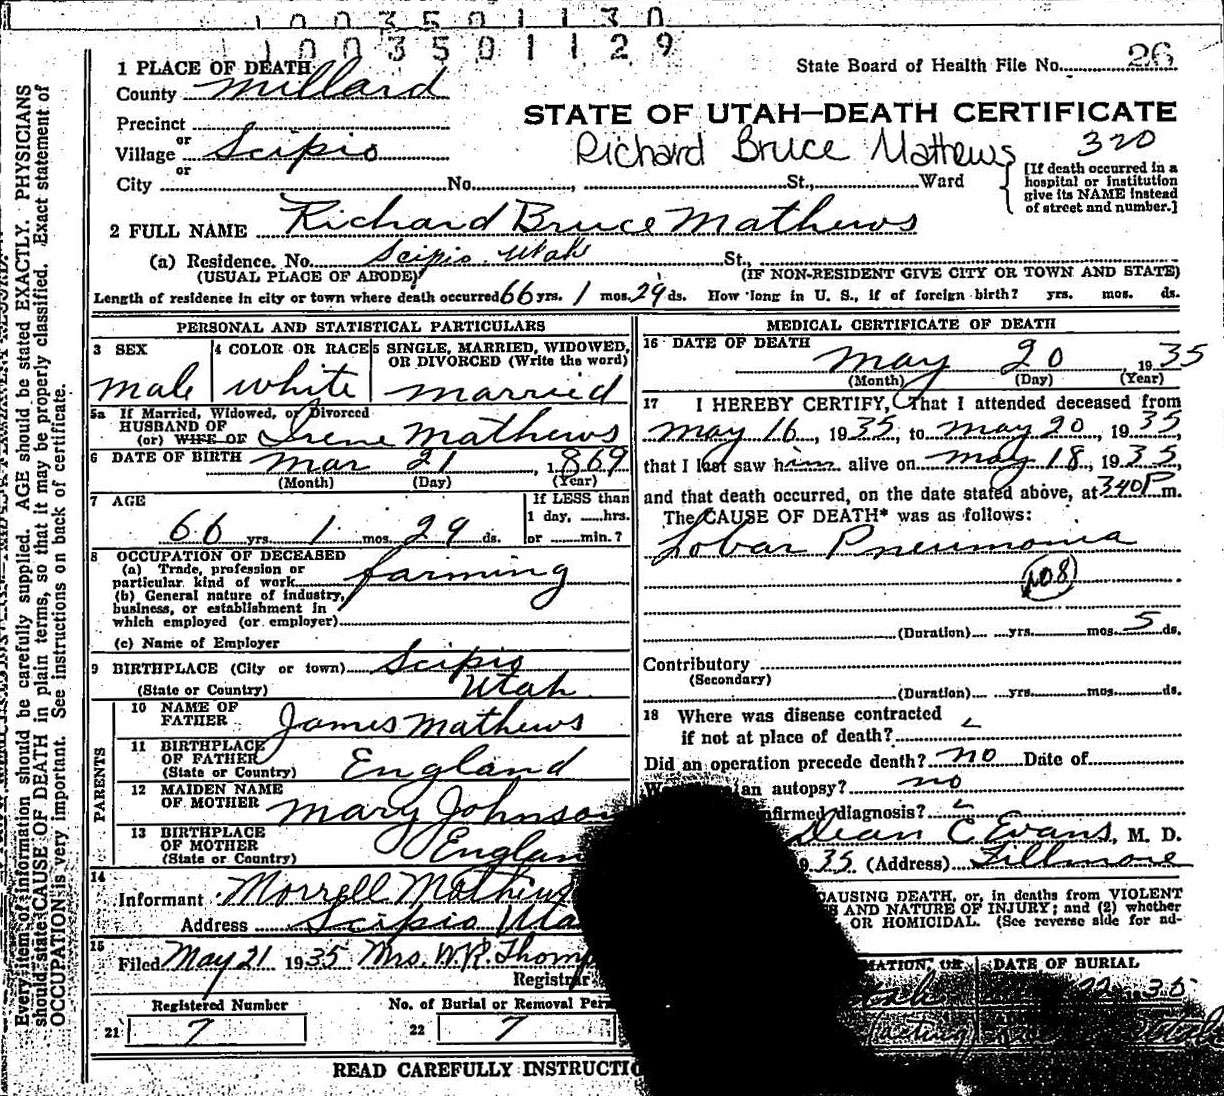 1003501130
1003501129
1 PLACE OF DEATH
County Millard
State Board of Health File No. 26
STATE OF UTAH—DEATH CERTIFICATE
Precinct
or
Village Scipio
or
Richard Bruce Mathews 320
City No. , St., Ward
[If death occurred in a
hospital or institution
give its NAME instead
of street and number.]
2 FULL NAME Richard Bruce Mathews
(a) Residence. No. Scipio Utah St.,
(USUAL PLACE OF ABODE) (IF NON-RESIDENT GIVE CITY OR TOWN AND STATE)
Length of residence in city or town where death occurred 66 yrs. 1 mos. 29 ds. How long in U. S., if of foreign birth? yrs. mos. ds.
PERSONAL AND STATISTICAL PARTICULARS
3 SEX
male
4 COLOR OR RACE
white
5 SINGLE, MARRIED, WIDOWED,
OR DIVORCED (Write the word)
married
5a If Married, Widowed, or Divorced
HUSBAND OF
(or) WIFE OF Irene Mathews
6 DATE OF BIRTH Mar 21, 1869
(Month) (Day) (Year)
7 AGE
66 yrs. 1 mos. 29 ds.
If LESS than
1 day, hrs.
or min.?
8 OCCUPATION OF DECEASED
(a) Trade, profession or
particular kind of work farming
(b) General nature of industry,
business, or establishment in
which employed (or employer)
(c) Name of Employer
9 BIRTHPLACE (City or town) Scipio
(State or Country) Utah
PARENTS
10 NAME OF
FATHER James Mathews
11 BIRTHPLACE
OF FATHER
(State or Country) England
12 MAIDEN NAME
OF MOTHER Mary Johnson
13 BIRTHPLACE
OF MOTHER
(State or Country) Englan
14
Informant Morrell Mathews
Address Scipio Uta
15
Filed May 21 1935 Mrs. W.R. Thomp
Registrar
Registered Number
21 7
No. of Burial or Removal Per
22 7
READ CAREFULLY INSTRUCTIO
MEDICAL CERTIFICATE OF DEATH
16 DATE OF DEATH
May 20 1935
(Month) (Day) (Year)
17 I HEREBY CERTIFY, That I attended deceased from
May 16, 1935, to May 20, 1935,
that I last saw him alive on May 18, 1935,
and that death occurred, on the date stated above, at 340 P m.
The CAUSE OF DEATH* was as follows:
Lobar Pneumonia
108
(Duration) yrs. mos. 5 ds.
Contributory
(Secondary)
(Duration) yrs. mos. ds.
18 Where was disease contracted
if not at place of death?
Did an operation precede death? no Date of
an autopsy? no
nfirmed diagnosis?
Dean C. Evans, M. D.
35 (Address) Fillmore
AUSING DEATH, or, in deaths from VIOLENT
AND NATURE OF INJURY; and (2) whether
OR HOMICIDAL. (See reverse side for ad-
MATION, OR DATE OF BURIAL
22 35
Every item of information should be carefully supplied. AGE should be stated EXACTLY. PHYSICIANS
should state CAUSE OF DEATH in plain terms, so that it may be properly classified. Exact statement of
OCCUPATION is very important. See instructions on back of certificate.